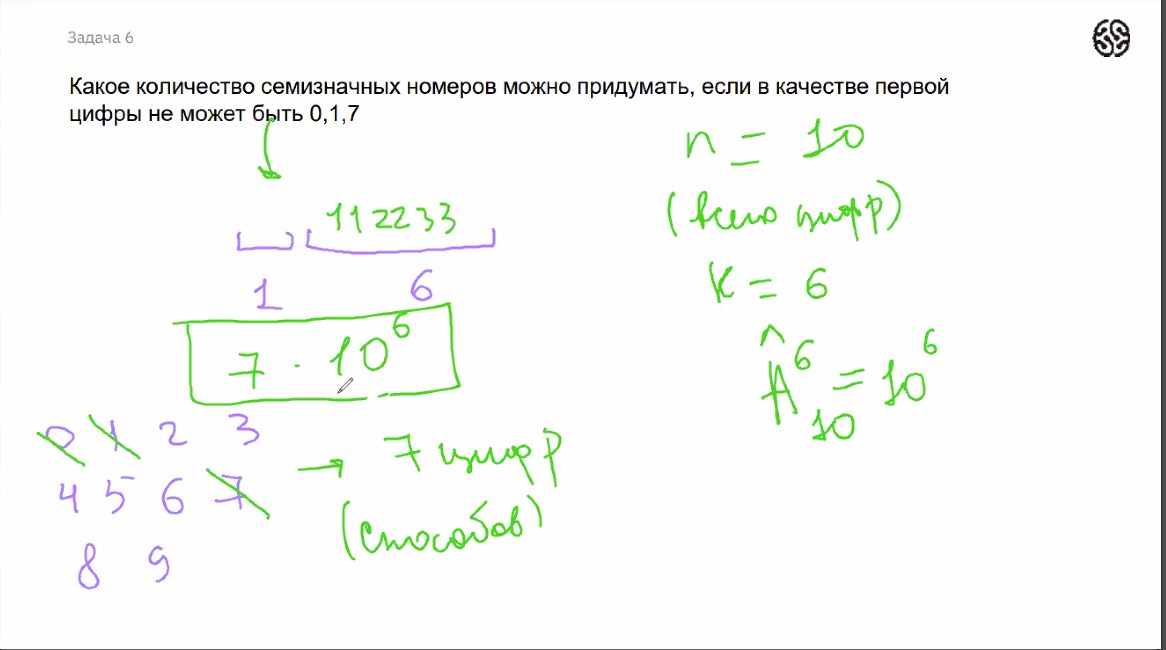 Задача 6
Какое количество семизначных номеров можно придумать, если в качестве первой
цифры не может быть 0,1,7
112233
1 6
7 · 10⁶
0 1 2 3
4 5 6 7
8 9
→ 7 цифр
(способов)
n = 10
(всего цифр)
k = 6
Â⁶₁₀ = 10⁶